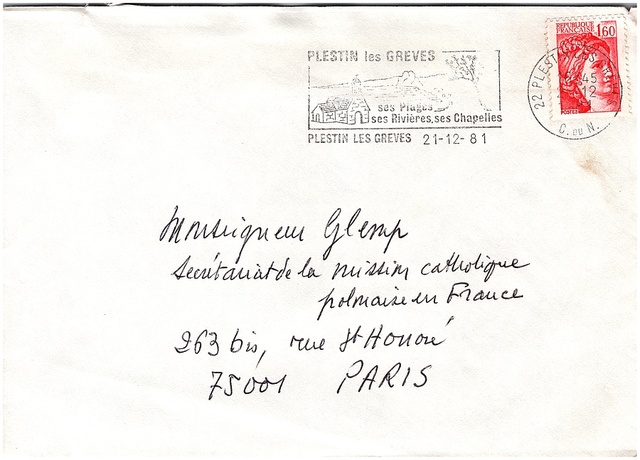 PLESTIN les GREVES
ses Plages
ses Rivières, ses Chapelles
PLESTIN LES GREVES 21-12-81
REPUBLIQUE
FRANÇAISE
1,60
POSTES
22 PLEST
45
12
C. DU N.
Monseigneur Glemp
Secrétariat de la mission catholique
polonaise en France
263 bis, rue St Honoré
75001 PARIS